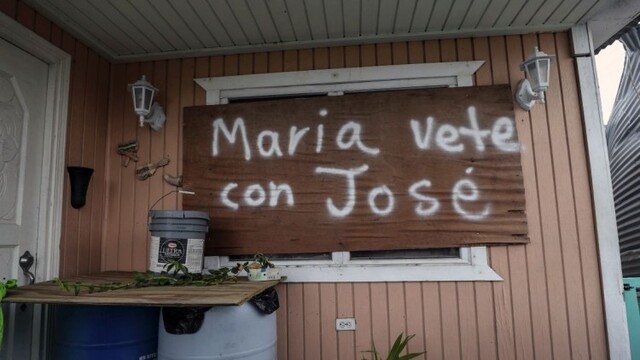 Maria vete
con José
ULTRA